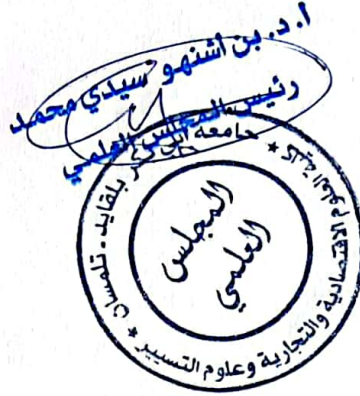 أ.د. بن أشنهو سيدي محمد
رئيس المجلس العلمي
جامعة أبي بكر بلقايد - تلمسان
* كلية العلوم الاقتصادية والتجارية وعلوم التسيير *
المجلس
العلمي